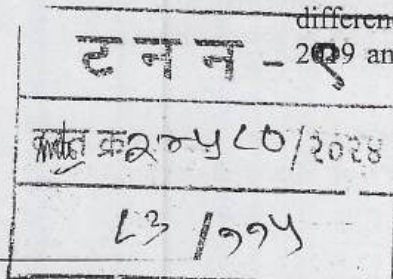 differen
टनन - ९
2019 an
दस्त क्र /२०२४
८३ /११५